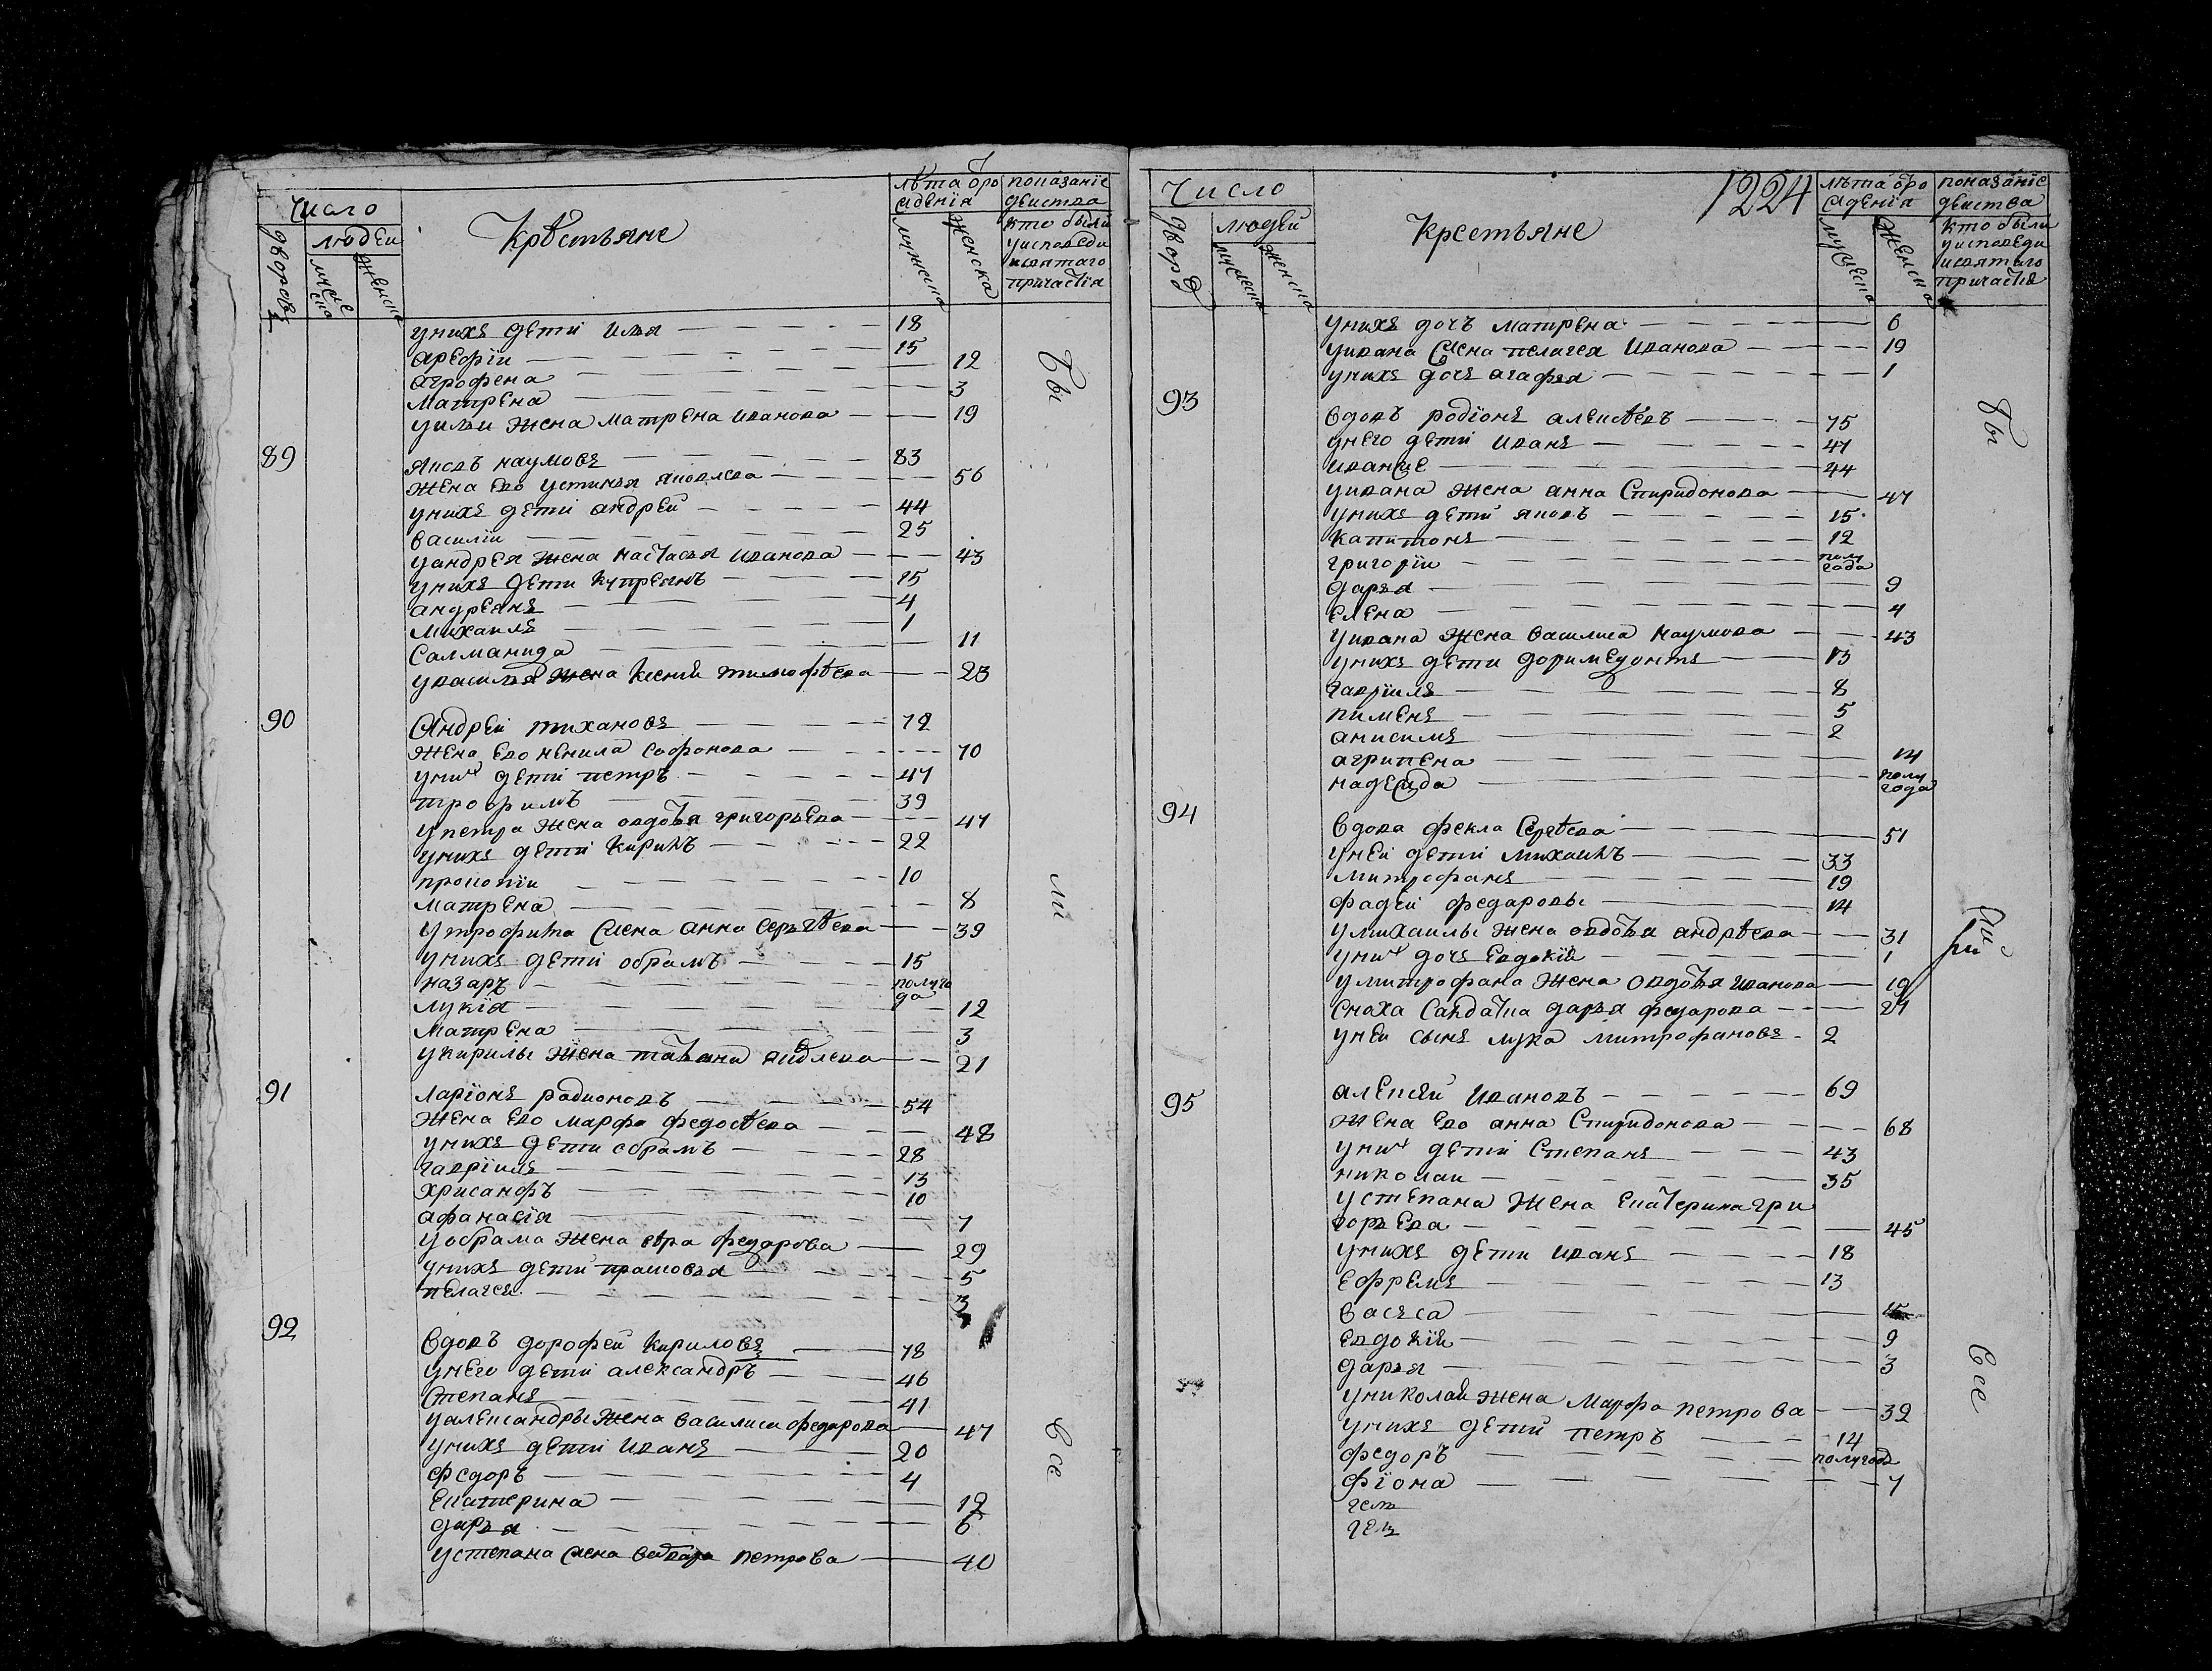 Число
дворовъ
людеи
мужеска
женска
Крестьяне
лѣта от рождения
мужеска
женска
показаніе действа кто были у исповеди и святаго причастїя
у нихъ дети илья — 18
арефїи — 15
агрофена — 12
матрена — 3
у ильи жена матрена иванова — 19
89 яковъ наумовъ — 83
жена ево устинья яковлева — 56
у нихъ дети андрей — 44
василіи — 25
у андрея жена настасья иванова — 43
у нихъ дети купреянъ — 15
андреянъ — 4
михаилъ — 1
салманида — 11
у василья жена ксения тимофѣева — 23
90 Андреи тихановъ — 72
жена ево ненила софонова — 70
у них дети петръ — 47
трофимъ — 39
у петра жена овдотья григорьева — 47
у нихъ дети кирилъ — 22
прокопїи — 10
матрена — 8
у трофима жена анна сергѣева — 39
у нихъ дети обрамъ — 15
назаръ — полуго да
лукїя — 12
матрена — 3
у кирилы жена татьяна яковлева — 21
91 ларїонъ радионовъ — 54
жена ево марфа федосѣева — 48
у нихъ дети обрамъ — 28
гаврїилъ — 13
хрисанфъ — 10
афанасїя — 7
у обрама жена федарова — 29
у нихъ дети прасковья — 5
пелагея — 3
92 вдовъ дорофеи кириловъ — 78
у него дети александръ — 46
степанъ — 41
у александры жена василиса федарова — 47
у нихъ дети иванъ — 20
федоръ — 4
екатерина — 12
дарья — 6
у степана жена петрова — 40
Бы
ли
Все
Число
дворовъ
людей
мужеска
женска
Крестьяне
1224
лѣта от рождения
мужеска
женска
показаніе действа кто были у исповеди и святаго причастїя
у нихъ дочъ матрена — 6
у ивана жена пелагея иванова — 19
у нихъ дочъ агафья — 1
93 вдовъ родїонъ алексѣевъ — 75
у него дети иванъ — 47
иванже — 44
у ивана жена анна спиридонова — 47
у нихъ дети яковъ — 15
капитонъ — 12
григорїи — полу года
дарья — 9
елена — 4
у ивана жена василиса наумова — 43
у нихъ дети доримедонтъ — 13
гаврїилъ — 8
пименъ — 5
анисимъ — 2
агрипена — 14
надежда — полу года
94 вдова фекла сергѣева — 51
у неи дети михаилъ — 33
митрофанъ — 19
фадеи федаровы — 14
у михаилы жена овдотья андрѣева — 31
у них дочъ евдокия — 1
у митрофана жена овдотья иванова — 19
сноха салдатка дарья федарова — 27
у неи сынъ лука митрофановъ — 2
95 алексеи ивановъ — 69
жена ево анна спиридонова — 68
у них дети степанъ — 43
николаи — 35
у степана жена екатерина гри
горьева — 45
у нихъ дети иванъ — 18
ефремъ — 13
васъса — 15
евдокия — 9
дарья — 3
у николая жена марфа петрова — 32
у нихъ дети петръ — 14
федоръ — полугода
фїона — 7
Бы
ли
Все